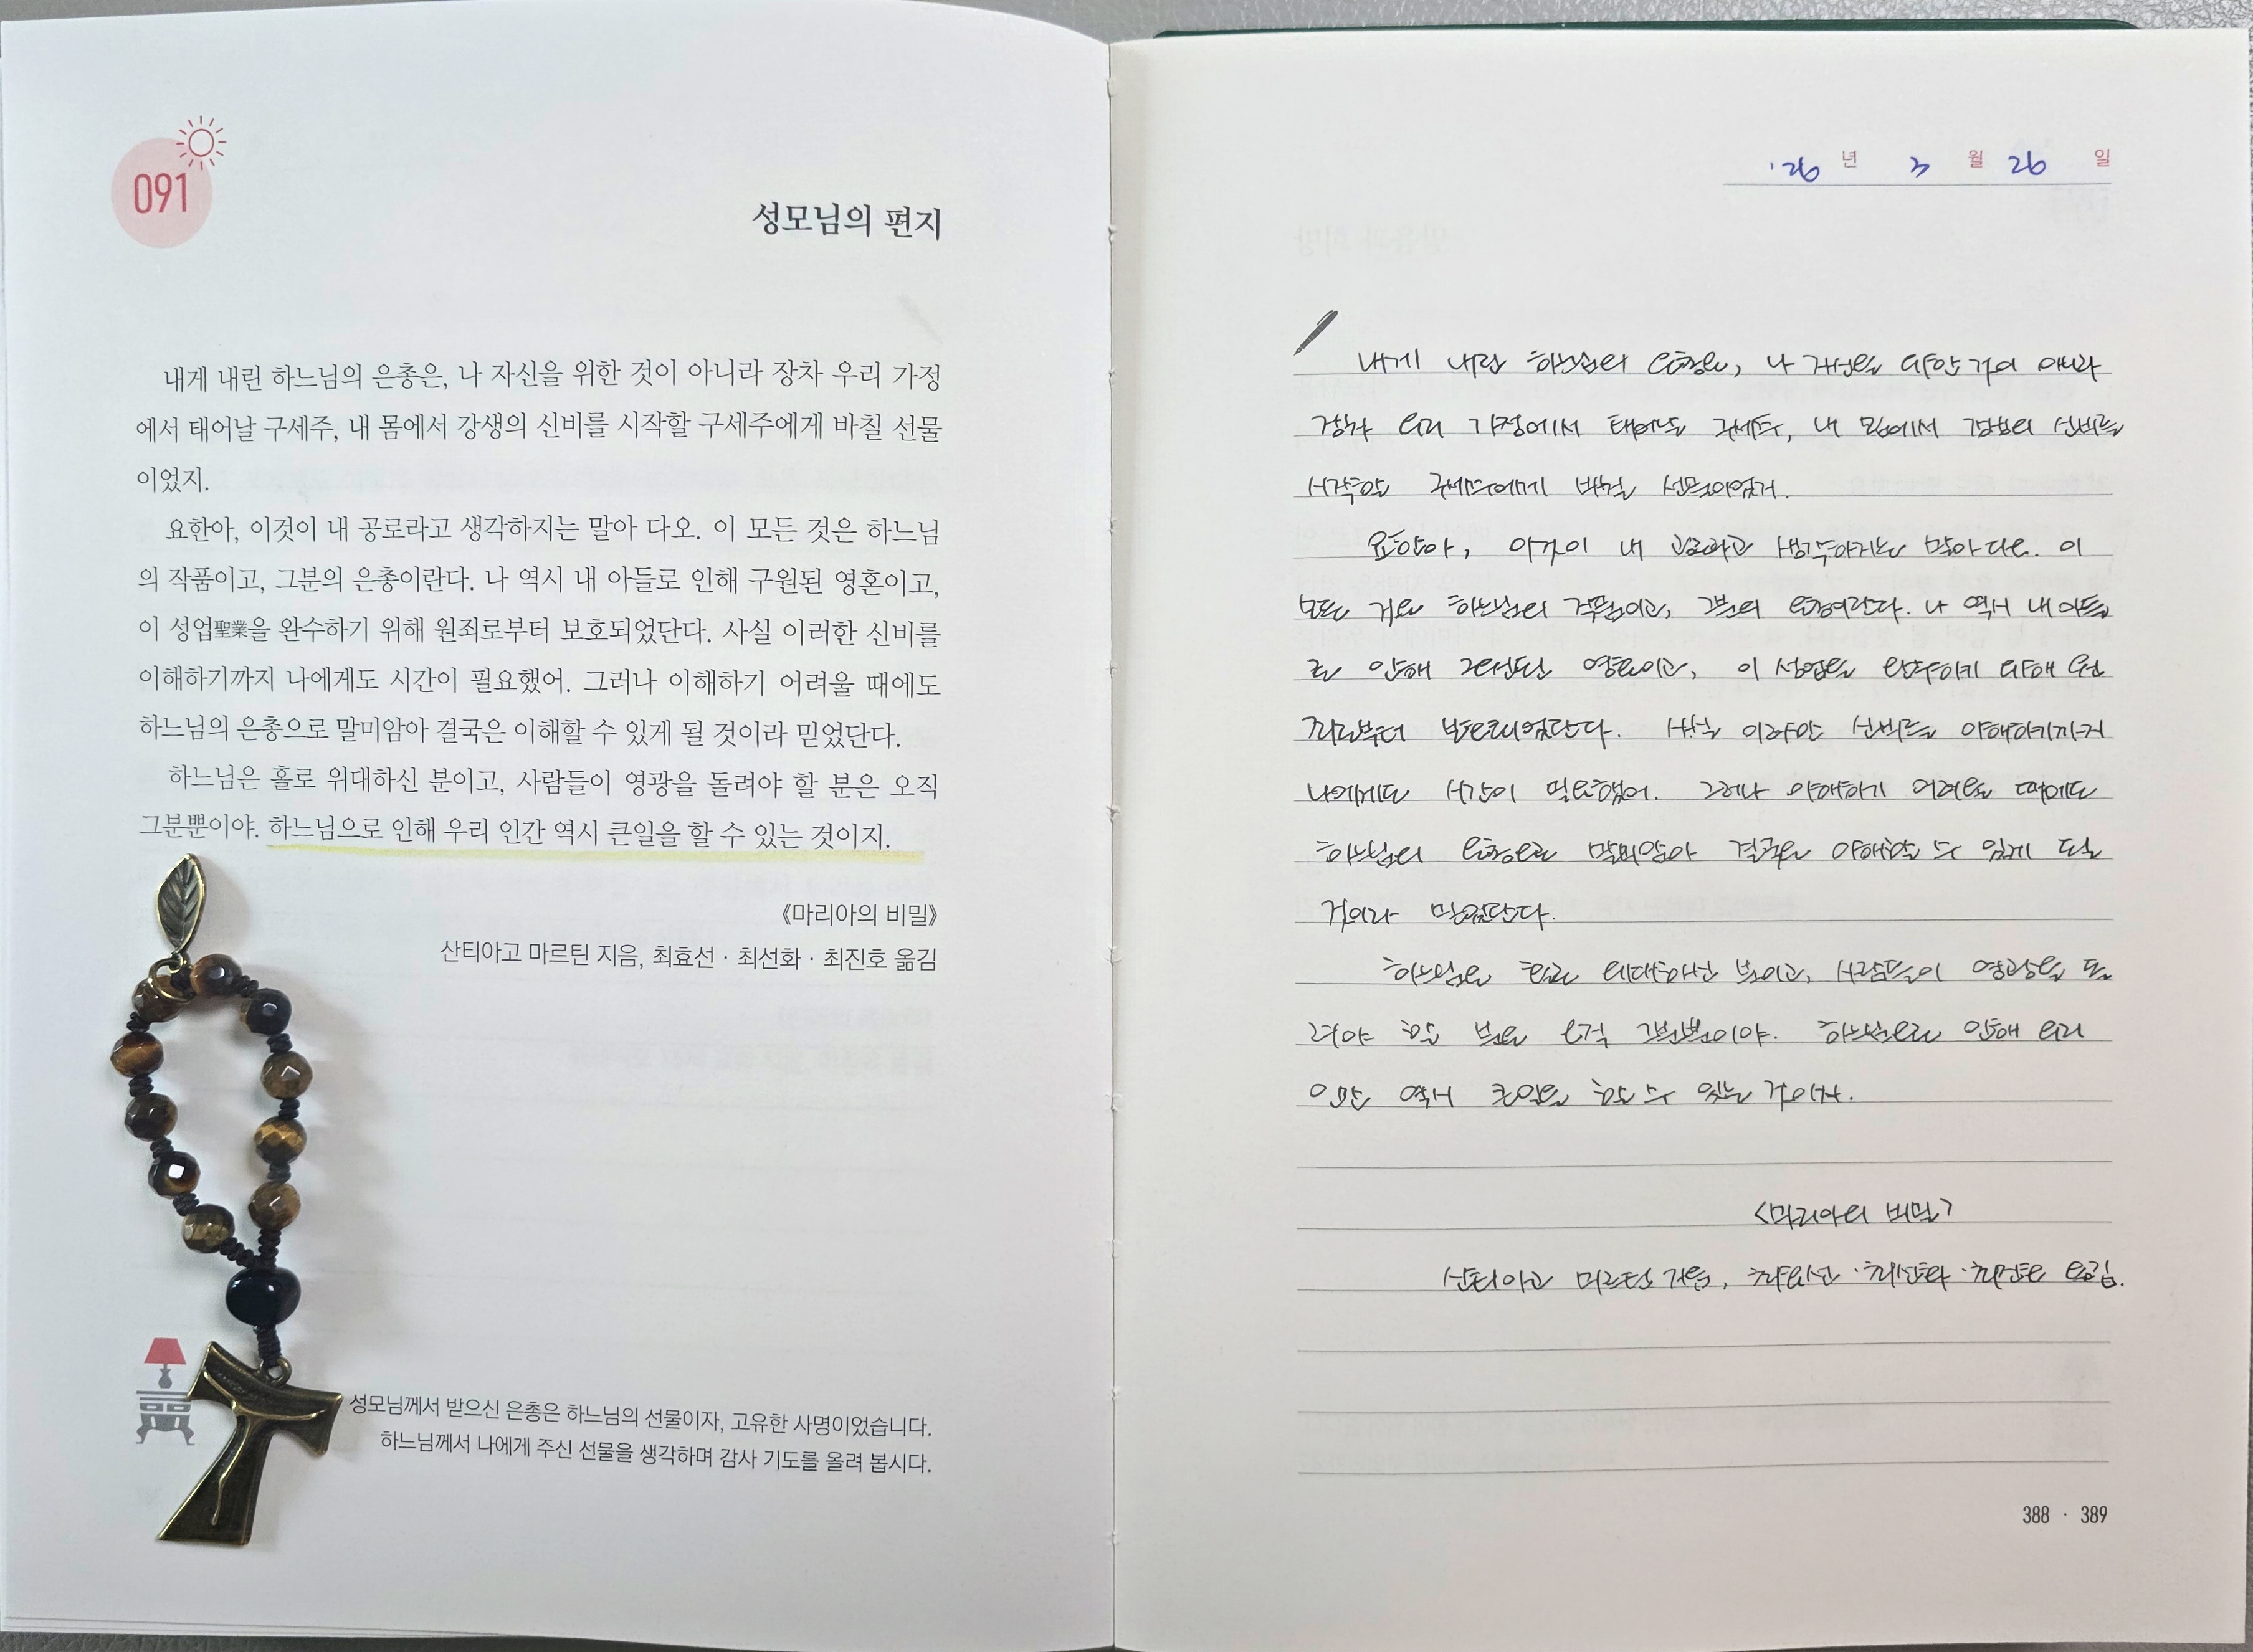 091
성모님의 편지
내게 내린 하느님의 은총은, 나 자신을 위한 것이 아니라 장차 우리 가정
에서 태어날 구세주, 내 몸에서 강생의 신비를 시작할 구세주에게 바칠 선물
이었지.
요한아, 이것이 내 공로라고 생각하지는 말아 다오. 이 모든 것은 하느님
의 작품이고, 그분의 은총이란다. 나 역시 내 아들로 인해 구원된 영혼이고,
이 성업聖業을 완수하기 위해 원죄로부터 보호되었단다. 사실 이러한 신비를
이해하기까지 나에게도 시간이 필요했어. 그러나 이해하기 어려울 때에도
하느님의 은총으로 말미암아 결국은 이해할 수 있게 될 것이라 믿었단다.
하느님은 홀로 위대하신 분이고, 사람들이 영광을 돌려야 할 분은 오직
그분뿐이야. 하느님으로 인해 우리 인간 역시 큰일을 할 수 있는 것이지.
《마리아의 비밀》
산티아고 마르틴 지음, 최효선 · 최선화 · 최진호 옮김
성모님께서 받으신 은총은 하느님의 선물이자, 고유한 사명이었습니다.
하느님께서 나에게 주신 선물을 생각하며 감사 기도를 올려 봅시다.
'26 년 3 월 26 일
내게 내린 하느님의 은총은, 나 자신을 위한 것이 아니라
장차 우리 가정에서 태어날 구세주, 내 몸에서 강생의 신비를
시작할 구세주에게 바칠 선물이었지.
요한아, 이것이 내 공로라고 생각하지는 말아 다오. 이
모든 것은 하느님의 작품이고, 그분의 은총이란다. 나 역시 내 아들
로 인해 구원된 영혼이고, 이 성업을 완수하기 위해 원
죄로부터 보호되었단다. 사실 이러한 신비를 이해하기까지
나에게도 시간이 필요했어. 그러나 이해하기 어려울 때에도
하느님의 은총으로 말미암아 결국은 이해할 수 있게 될
것이라 믿었단다.
하느님은 홀로 위대하신 분이고, 사람들이 영광을 돌
려야 할 분은 오직 그분뿐이야. 하느님으로 인해 우리
인간 역시 큰일을 할 수 있는 것이지.
<마리아의 비밀>
산티아고 마르틴 지음, 최효선 · 최선화 · 최진호 옮김.
388 · 389